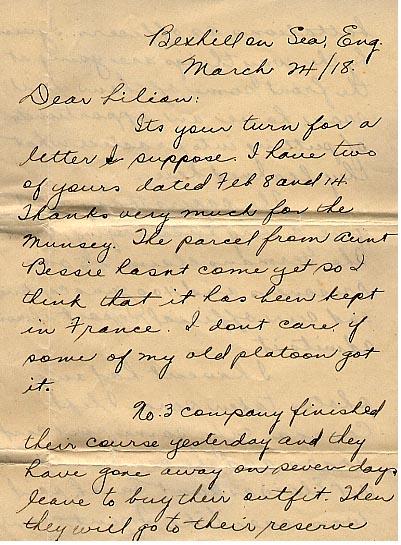 Bexhill on Sea, Eng.
March 24/18.
Dear Lilian:
Its your turn for a
letter I suppose. I have two
of yours dated Feb 8 and 14.
Thanks very much for the
Munsey. The parcel from Aunt
Bessie hasnt come yet so I
think that it has been kept
in France. I dont care if
some of my old platoon got
it.
No. 3 company finished
their course yesterday and they
have gone away on seven days
leave to buy their outfit. Then
they will go to their reserve